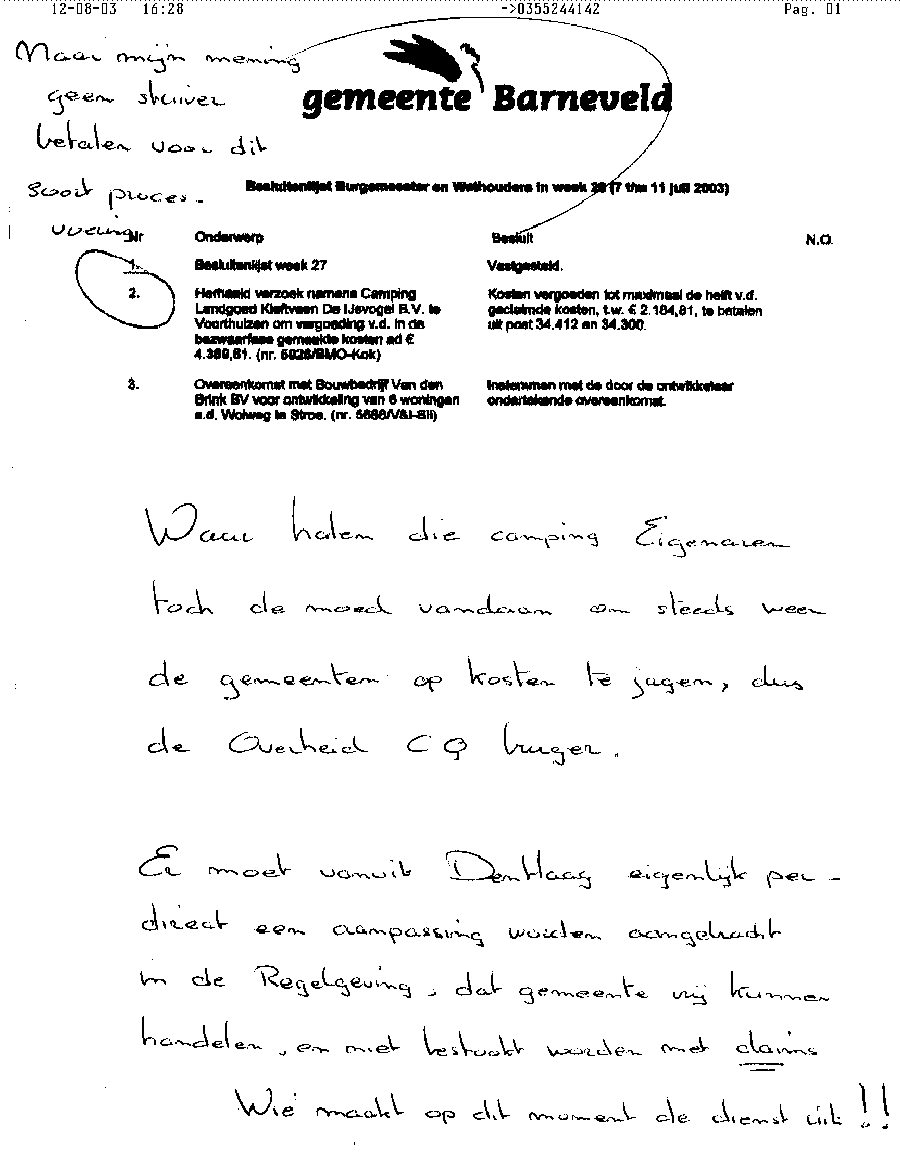 12-08-03 16:28 ->0355244142 Pag. 01
Naar mijn mening
geen stuiver
betalen voor dit
soort proces-
voering
gemeente Barneveld
Besluitenlijst Burgemeester en Wethouders in week 28 (7 t/m 11 juli 2003)
Nr Onderwerp Besluit N.O.
1. Besluitenlijst week 27 Vastgesteld.
2. Herhaald verzoek namens Camping Kosten vergoeden tot maximaal de helft v.d.
Landgoed Kieftveen De IJsvogel B.V. te geclaimde kosten, t.w. € 2.184,81, te betalen
Voorthuizen om vergoeding v.d. in de uit post 34.412 en 34.300.
bezwaarfase gemaakte kosten ad €
4.369,61. (nr. 5926/BMO-Kok)
3. Overeenkomst met Bouwbedrijf Van den Instemmen met de door de ontwikkelaar
Brink BV voor ontwikkeling van 6 woningen ondertekende overeenkomst.
a.d. Wolweg in Stroe. (nr.
Waar halen die camping Eigenaren
toch de moed vandaan om steeds weer
de gemeenten op kosten te jagen, dus
de Overheid CQ burger.
Er moet vanuit Den Haag eigenlijk per-
direct een aanpassing worden aangebracht
in de Regelgeving, dat gemeente vrij kunnen
handelen, en niet bestookt worden met claims
Wie maakt op dit moment de dienst uit !!